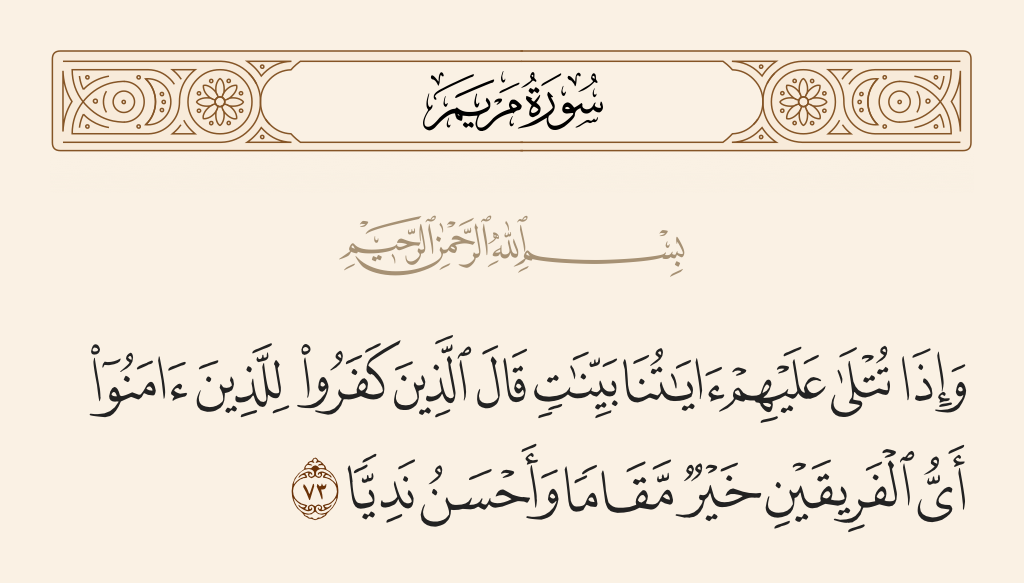 سُورَةُ مَرْيَمَ
بِسْمِ ٱللَّهِ ٱلرَّحْمَٰنِ ٱلرَّحِيمِ
وَإِذَا تُتْلَىٰ عَلَيْهِمْ ءَايَٰتُنَا بَيِّنَٰتٍ قَالَ ٱلَّذِينَ كَفَرُوا۟ لِلَّذِينَ ءَامَنُوٓا۟
أَىُّ ٱلْفَرِيقَيْنِ خَيْرٌ مَّقَامًا وَأَحْسَنُ نَدِيًّا ٧٣